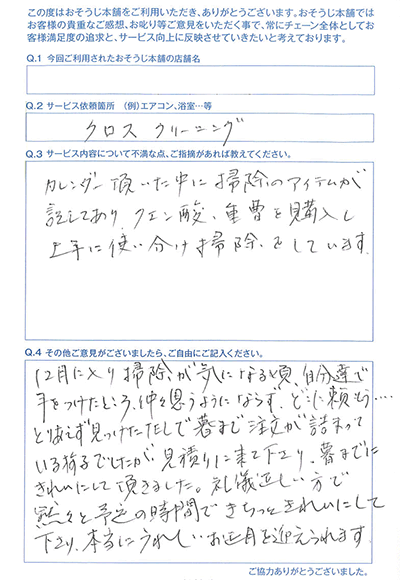 この度はおそうじ本舗をご利用いただき、ありがとうございます。おそうじ本舗では
お客様の貴重なご感想、お叱り等ご意見をいただく事で、常にチェーン全体としてお
客様満足度の追求と、サービス向上に反映させていきたいと考えております。
Q.1 今回ご利用されたおそうじ本舗の店舗名
Q.2 サービス依頼箇所 (例)エアコン、浴室…等
クロス クリーニング
Q.3 サービス内容について不満な点、ご指摘があれば教えてください。
カレンダー頂いた中に掃除のアイテムが
記してあり、クエン酸、重曹を購入し
上手に使い分け掃除をしています。
Q.4 その他ご意見がございましたら、ご自由にご記入ください。
12月に入り掃除が気になる頃、自分達で
手をつけたところ、仲々思うようにならず、どこに頼もう….
とりあえず見つけたTELで暮まで注文が詰まって
いる様るでしたが、見積りに来て下さり、暮までに
きれいにして頂きました。礼儀正しい方で
黙々と予定の時間できちっときれいにして
下さり、本当にうれしいお正月を迎えられます。
ご協力ありがとうございました。